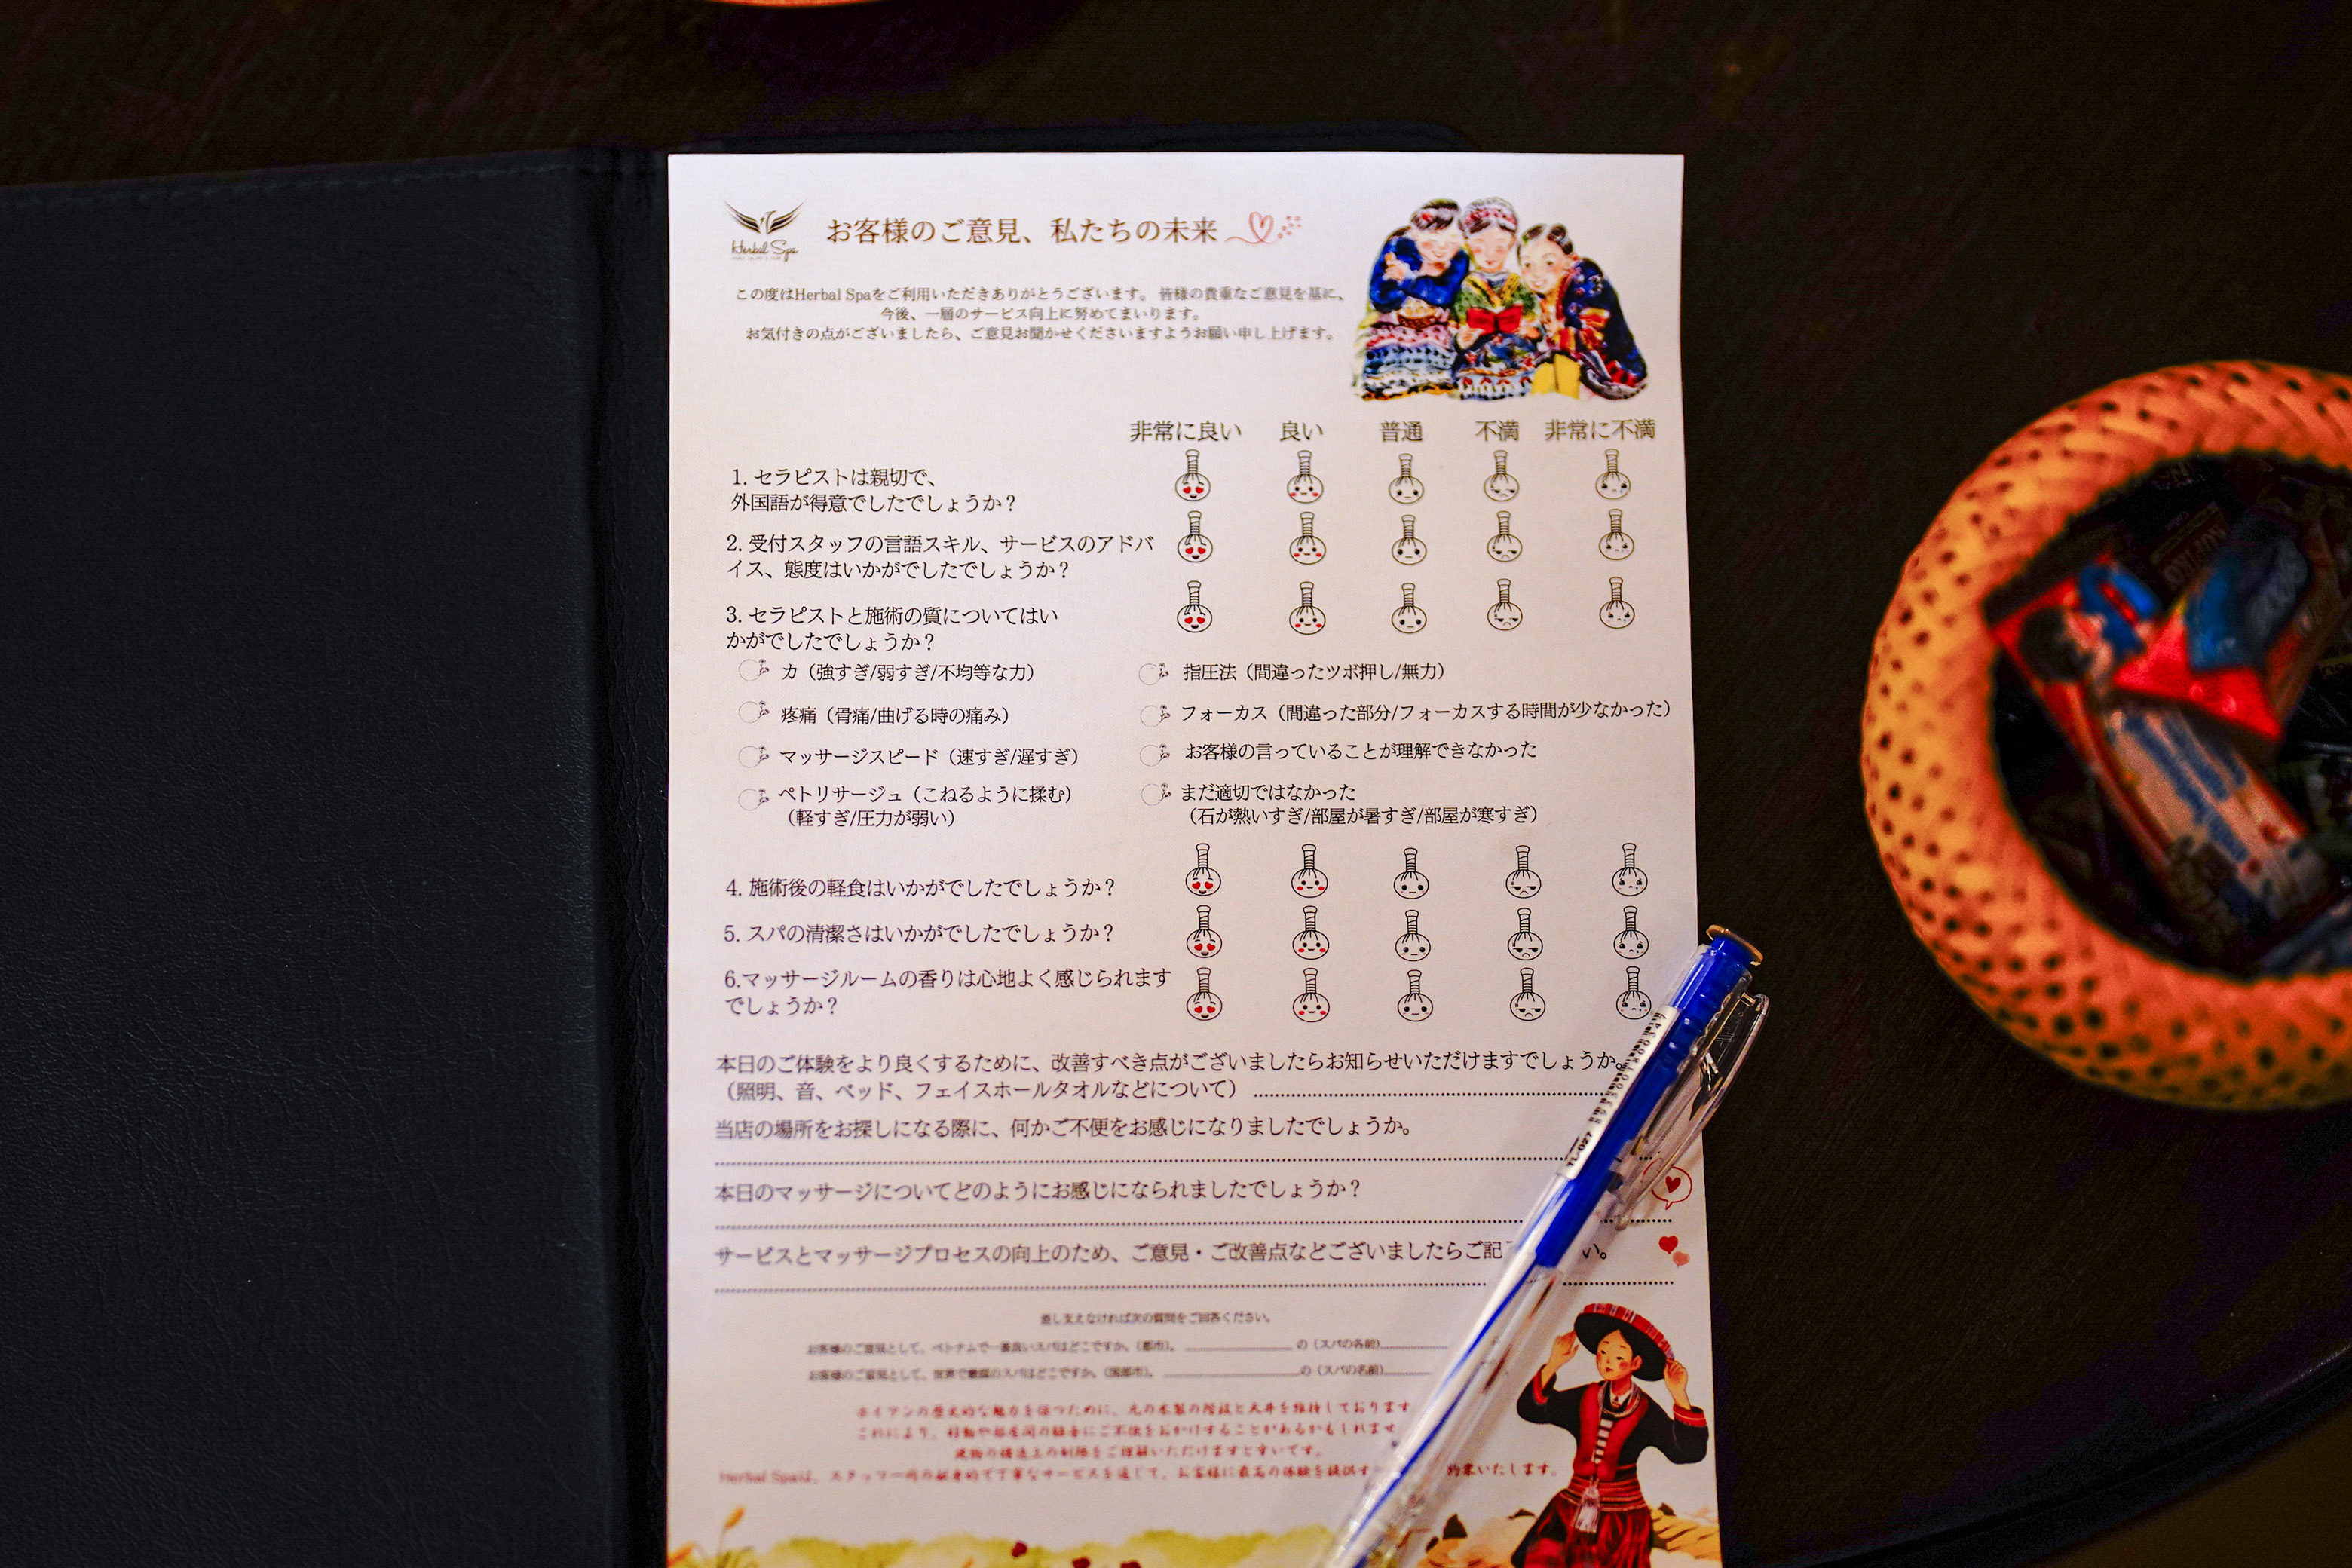 Herbal Spa
お客様のご意見、私たちの未来
この度はHerbal Spaをご利用いただきありがとうございます。 皆様の貴重なご意見を基に、
今後、一層のサービス向上に努めてまいります。
お気付きの点がございましたら、ご意見お聞かせくださいますようお願い申し上げます。
非常に良い 良い 普通 不満 非常に不満
1. セラピストは親切で、
外国語が得意でしたでしょうか？
2. 受付スタッフの言語スキル、サービスのアドバ
イス、態度はいかがでしたでしょうか？
3. セラピストと施術の質についてはい
かがでしたでしょうか？
力（強すぎ/弱すぎ/不均等な力）
指圧法（間違ったツボ押し/無力）
疼痛（骨痛/曲げる時の痛み）
フォーカス（間違った部分/フォーカスする時間が少なかった）
マッサージスピード（速すぎ/遅すぎ）
お客様の言っていることが理解できなかった
ペトリサージュ（こねるように揉む）
（軽すぎ/圧力が弱い）
まだ適切ではなかった
（石が熱いすぎ/部屋が暑すぎ/部屋が寒すぎ）
4. 施術後の軽食はいかがでしたでしょうか？
5. スパの清潔さはいかがでしたでしょうか？
6.マッサージルームの香りは心地よく感じられます
でしょうか？
本日のご体験をより良くするために、改善すべき点がございましたらお知らせいただけますでしょうか。
（照明、音、ベッド、フェイスホールタオルなどについて）
当店の場所をお探しになる際に、何かご不便をお感じになりましたでしょうか。
本日のマッサージについてどのようにお感じになられましたでしょうか？
サービスとマッサージプロセスの向上のため、ご意見・ご改善点などございましたらご記 い。
差し支えなければ次の質問をご回答ください。
お客様のご意見として、ベトナムで一番良いスパはどこですか。（都市）。 の（スパの名前）
お客様のご意見として、世界で最高のスパはどこですか。（国都市）。 の（スパの名前）
ホイアンの歴史的な魅力を保つために、元の木製の階段と天井を維持しております
これにより、移動や部屋間の騒音にご不便をおかけすることがあるかもしれませ
建物の構造上の制限をご理解いただけますと幸いです。
Herbal Spaは、スタッフ一同の献身的で丁寧なサービスを通じて、お客様に最高の体験を提供す 約束いたします。
TL-027